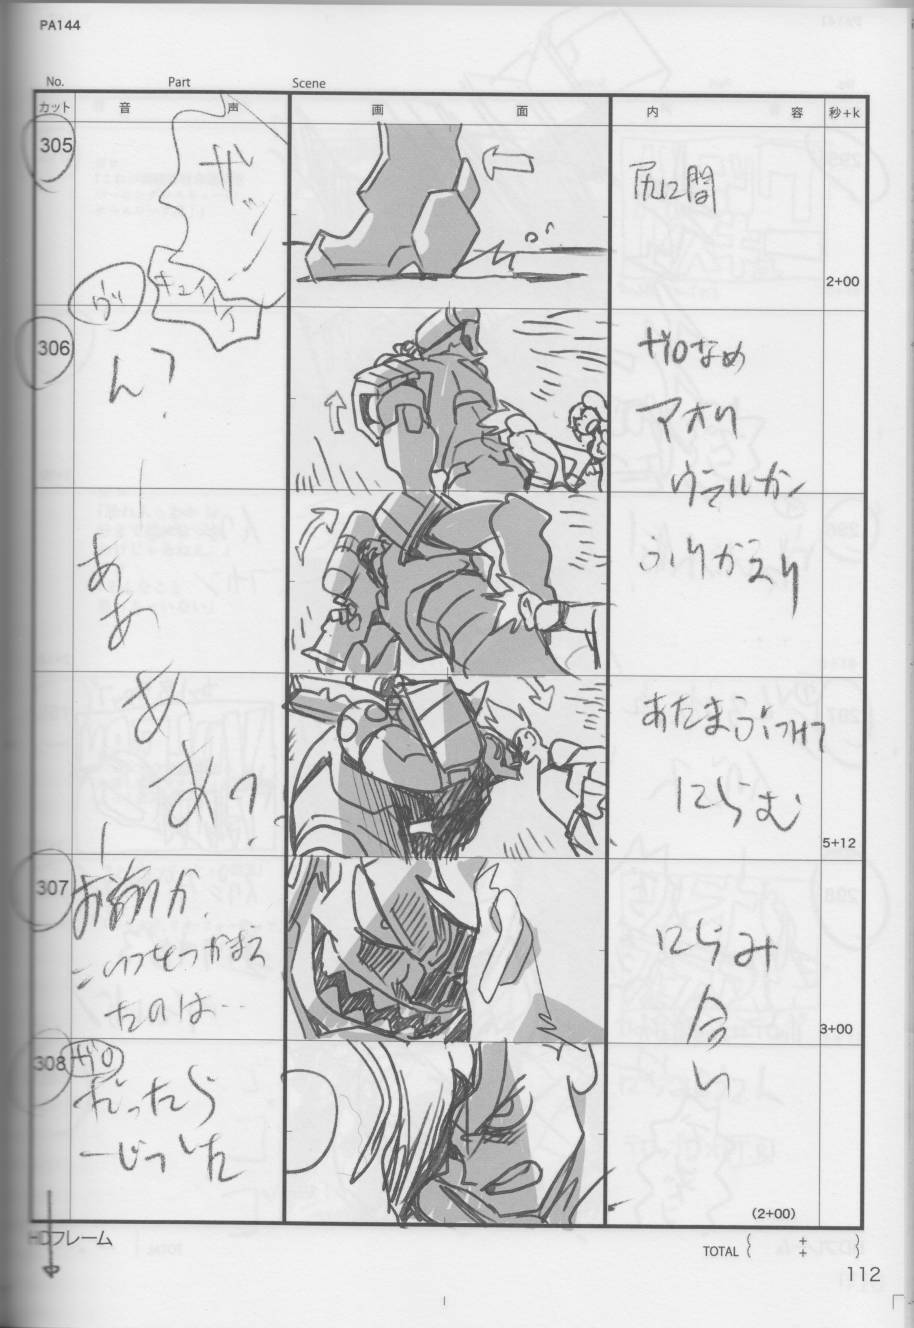 PA144
No.
Part
Scene
カット
音 声
画 面
内 容
秒+k
305
ザッ
キュイイイ
2+00
306
ん?
ザロなめ
マオリ
ウラルカン
ふりかえり
あ
あ
あ
あ?
あたまぶつけて
にらむ
5+12
307
お前か
こいつをつかまえ
たのは…
にらみ
合
い
3+00
308
ザロ
だったら
(2+00)
HDフレーム
TOTAL ( + + )
112